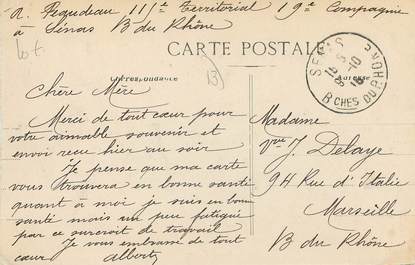 A. Peqùdeau 111e Territorial 19e Compagnie
à Sénas B du Rhône
CARTE POSTALE
Correspondance
Adresse
SENAS
BCHES DU RHONE
Chère Mère
Merci de tout cœur pour
votre aimable souvenir et
envoi recu hier au soir
Je pense que ma carte
vous trouvera en bonne santé
quant à moi je suis en bonne
santé mais un peu fatigué
par ce surcroit de travail
Je vous embrasse de tout
cœur Albert
Madame
Vve J. Delaye
94 Rue d'Italie
Marseille
B du Rhône